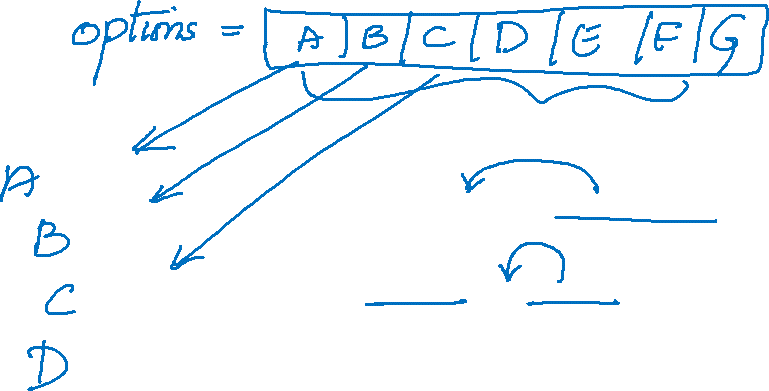 options = [A|B|C|D|E|F|G]
A
B
C
D